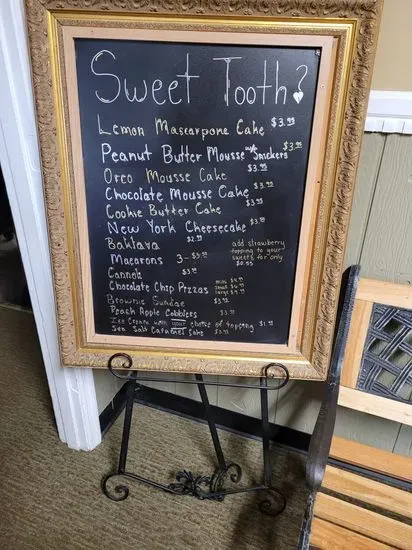 Sweet Tooth?
Lemon Mascarpone Cake $3.99
Peanut Butter Mousse w/ Snickers $3.99
Oreo Mousse Cake $3.99
Chocolate Mousse Cake $3.99
Cookie Butter Cake $3.99
New York Cheesecake $3.99
Baklava $2.99
Macarons 3-$5.00
Cannoli $3.99
add strawberry
topping to your
sweets for only
$0.55
Chocolate Chip Pizzas mini $4.99
small $6.99
large $9.99
Brownie Sundae $3.92
Peach Apple Cobblers $3.99
Ice Cream with your choice of topping $1.99
Sea Salt Caramel Cake $3.99